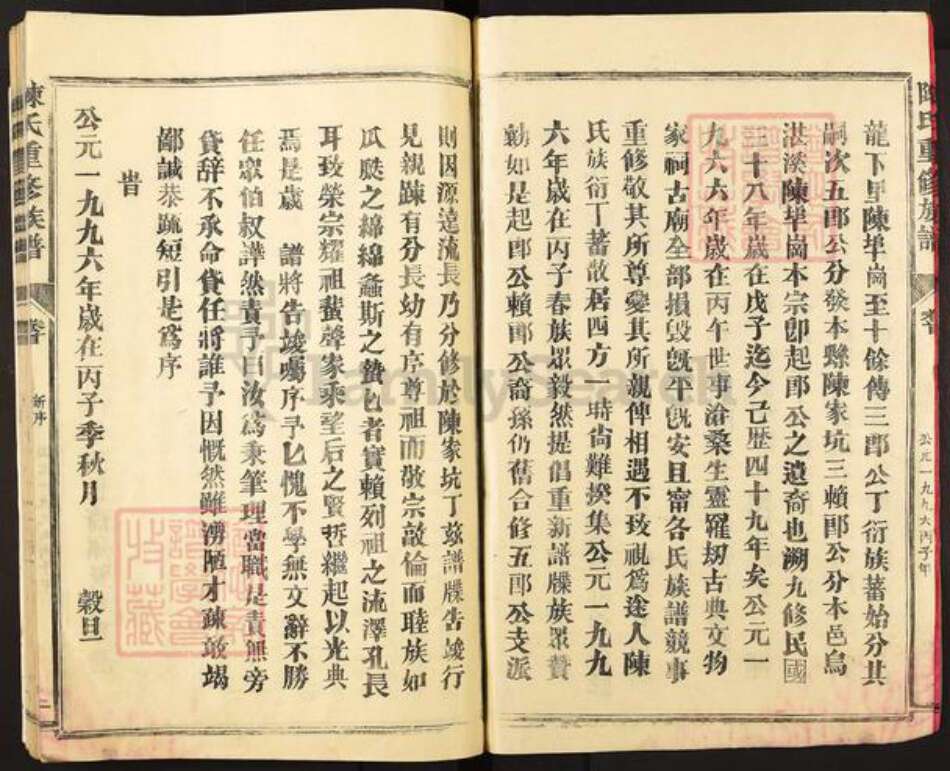 陳氏重修族譜
公元一九九六丙子年
龍下里陳埠崗至十餘傳三郎公丁衍族蕃始分其
嗣次五郎公分發本縣陳家坑三賴郎公分本邑烏
洪溪陳埠崗本宗卽起郎公之遺裔也溯九修民國
三十八年歲在戊子迄今己歷四十九年矣公元一
九六六年歲在丙午世事滄桑生靈罹刼古典文物
家祠古廟全部損毀旣平旣安且甯各氏族譜競事
重修敬其所尊愛其所親俾相遇不致視爲途人陳
氏族衍丁蕃散居四方一時尙難揆集公元一九九
六年歲在丙子春族眾毅然提倡重新譜牒族眾贊
勷如是起郎公賴郎公裔孫仍舊合修五郎公支派
則因源達流長乃分修於陳家坑丁兹譜牒告竣行
見親踈有分長幼有序尊祖而敬宗敦倫而睦族如
瓜瓞之綿綿螽斯之蟄蟄者實賴列祖之流澤孔長
耳致榮宗耀祖蜚聲家乘望后之賢哲繼起以光典
焉是歲 譜將告竣囑序予予愧不學無文辭不勝
任眾伯叔譁然責予曰汝爲秉筆理當職是責無旁
貸辞不承命貸任將誰予因慨然雖淺陋才疎敢竭
鄙誠恭䟽短引是爲序
旹
公元一九九六年歲在丙子季秋月 穀旦
陳氏重修族譜
新序
二
FamilySearch